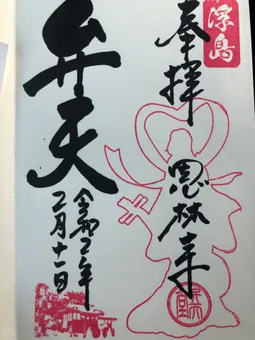 浮島
奉拝
恩林寺
弁天
令和二年
二月十一日